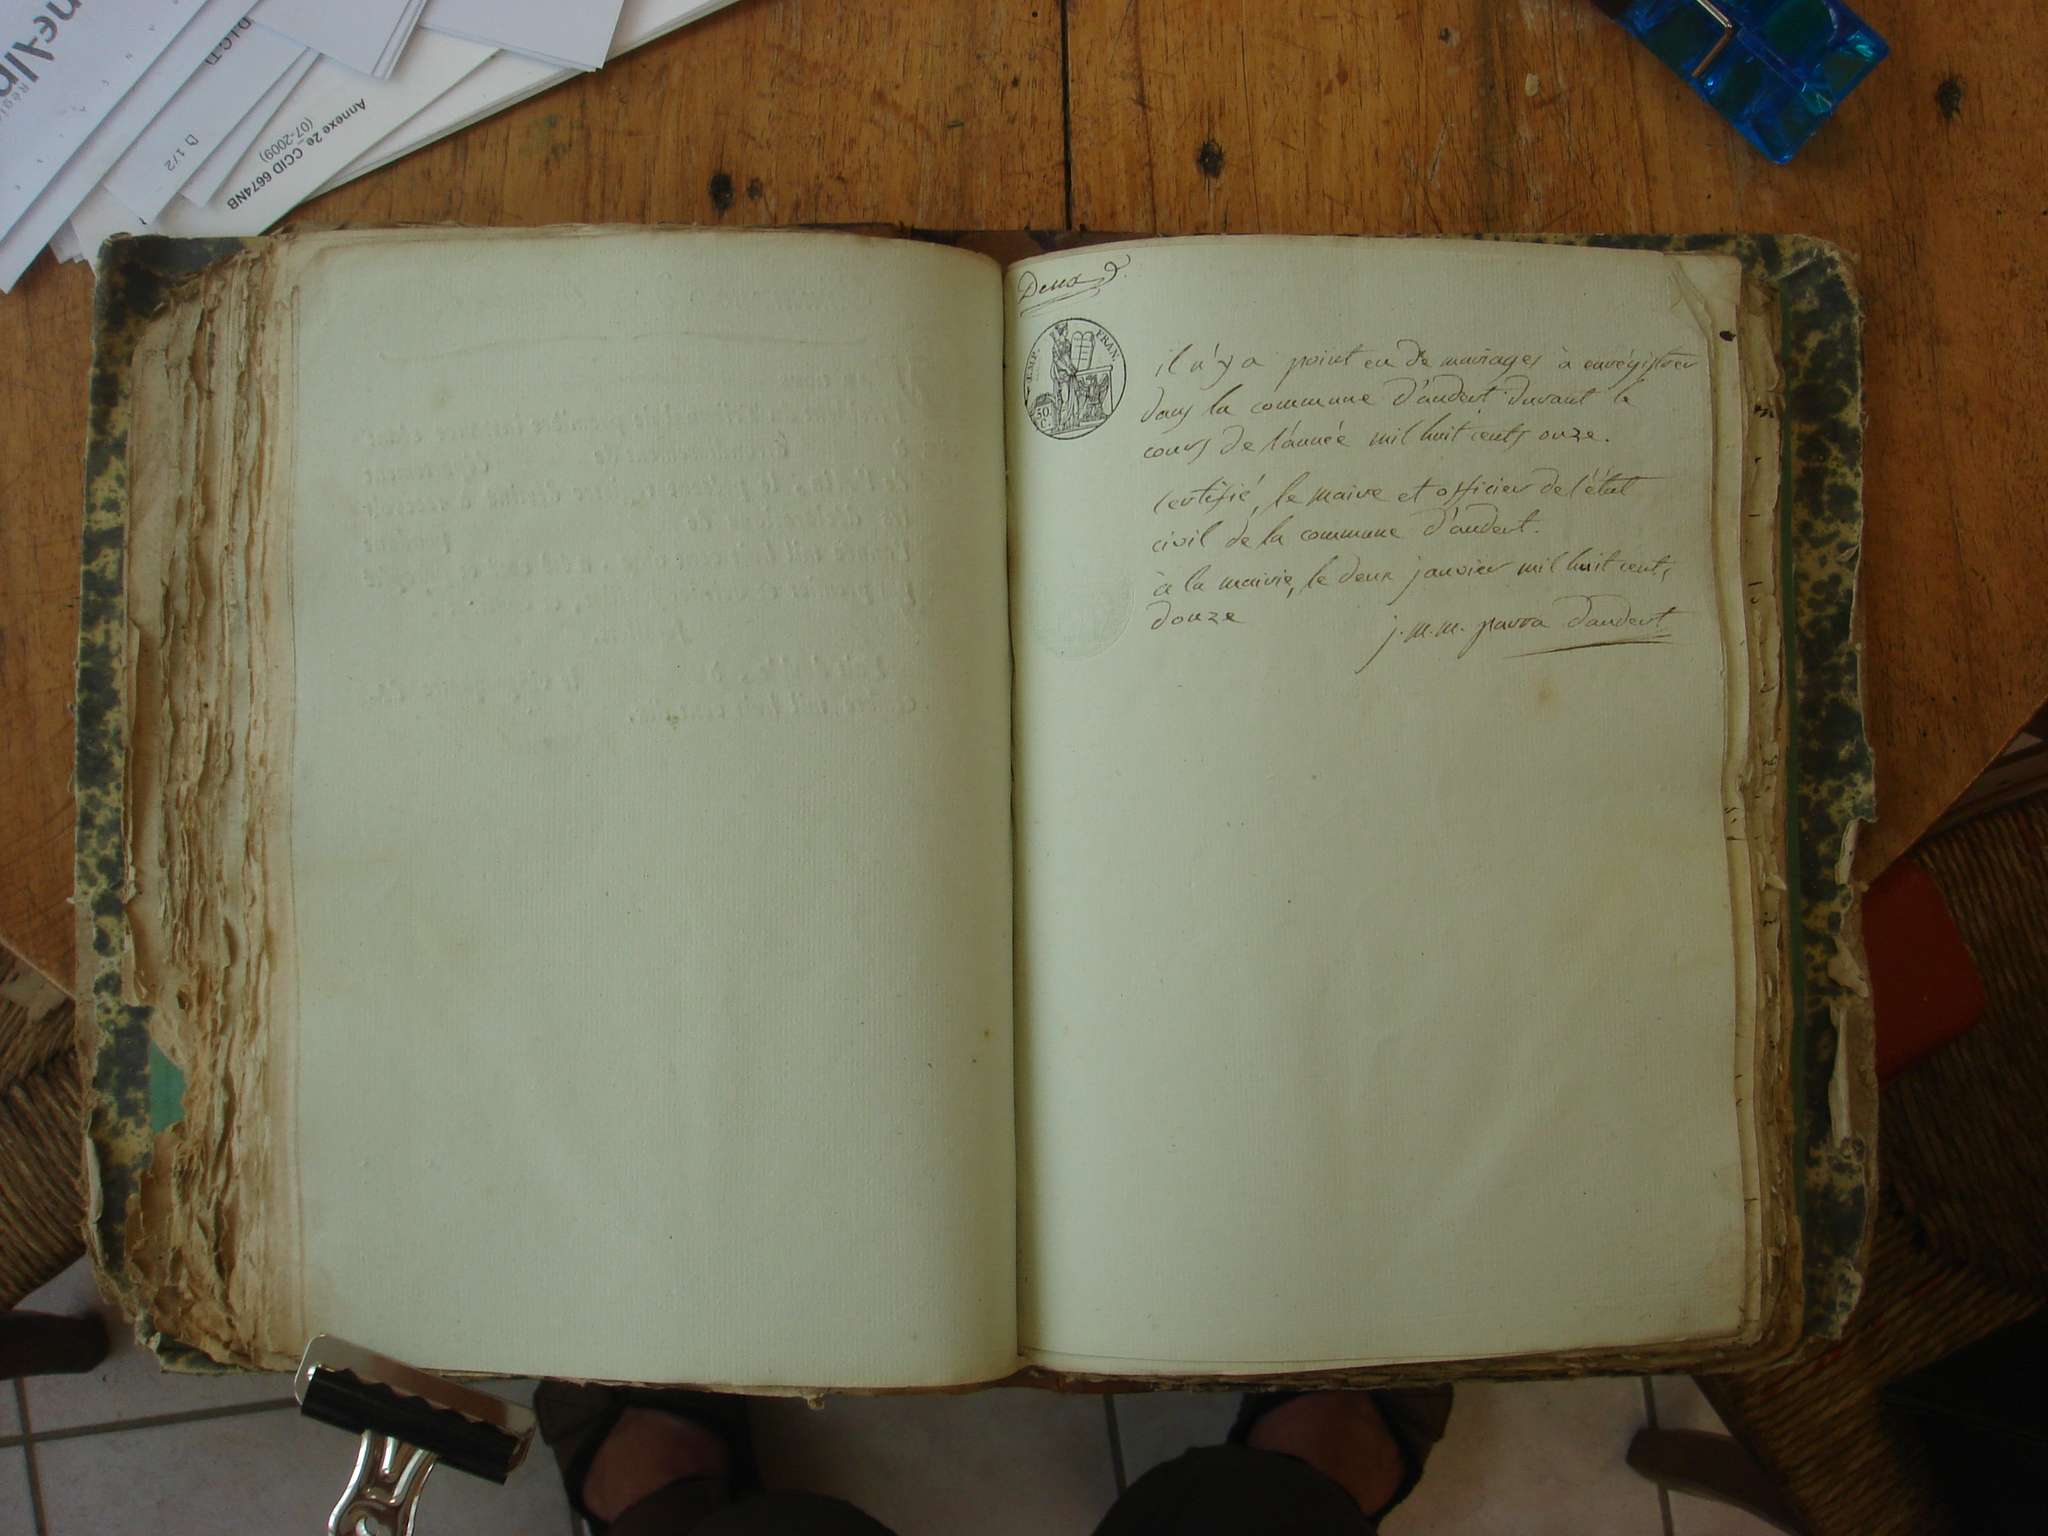 D.I.C.T)
1/2
Annexe 2e_CCID 6674NB
(07-2009)
Deux
EMP. FRAN.
50.
C.
il n'y a point eu de mariages à enrégistrer
dans la commune d'andert durant le
cours de l'année mil huit cents onze.
certifié, le maire et officier de l'état
civil de la commune d'andert.
à la mairie, le deux janvier mil huit cents
douze
j. m. m. parra dandert